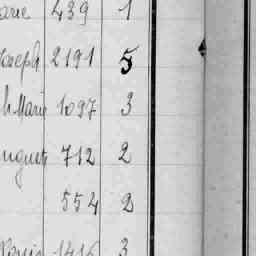 arie 439 1
Joseph 2191 5
h Marie 1097 3
uguet 712 2
554 2
Louis 1416 3